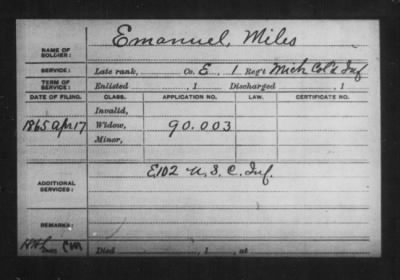 Emanuel, Miles
NAME OF SOLDIER:
SERVICE: Late rank, Co. E, 1 Reg't Mich Col'd Inf
TERM OF SERVICE: Enlisted , 1 Discharged , 1
DATE OF FILING. CLASS. APPLICATION NO. LAW. CERTIFICATE NO.
Invalid,
1865 Apr 17 Widow, 90.003
Minor,
E 102 U.S.C. Inf.
ADDITIONAL SERVICES:
REMARKS:
Died , 1 , at